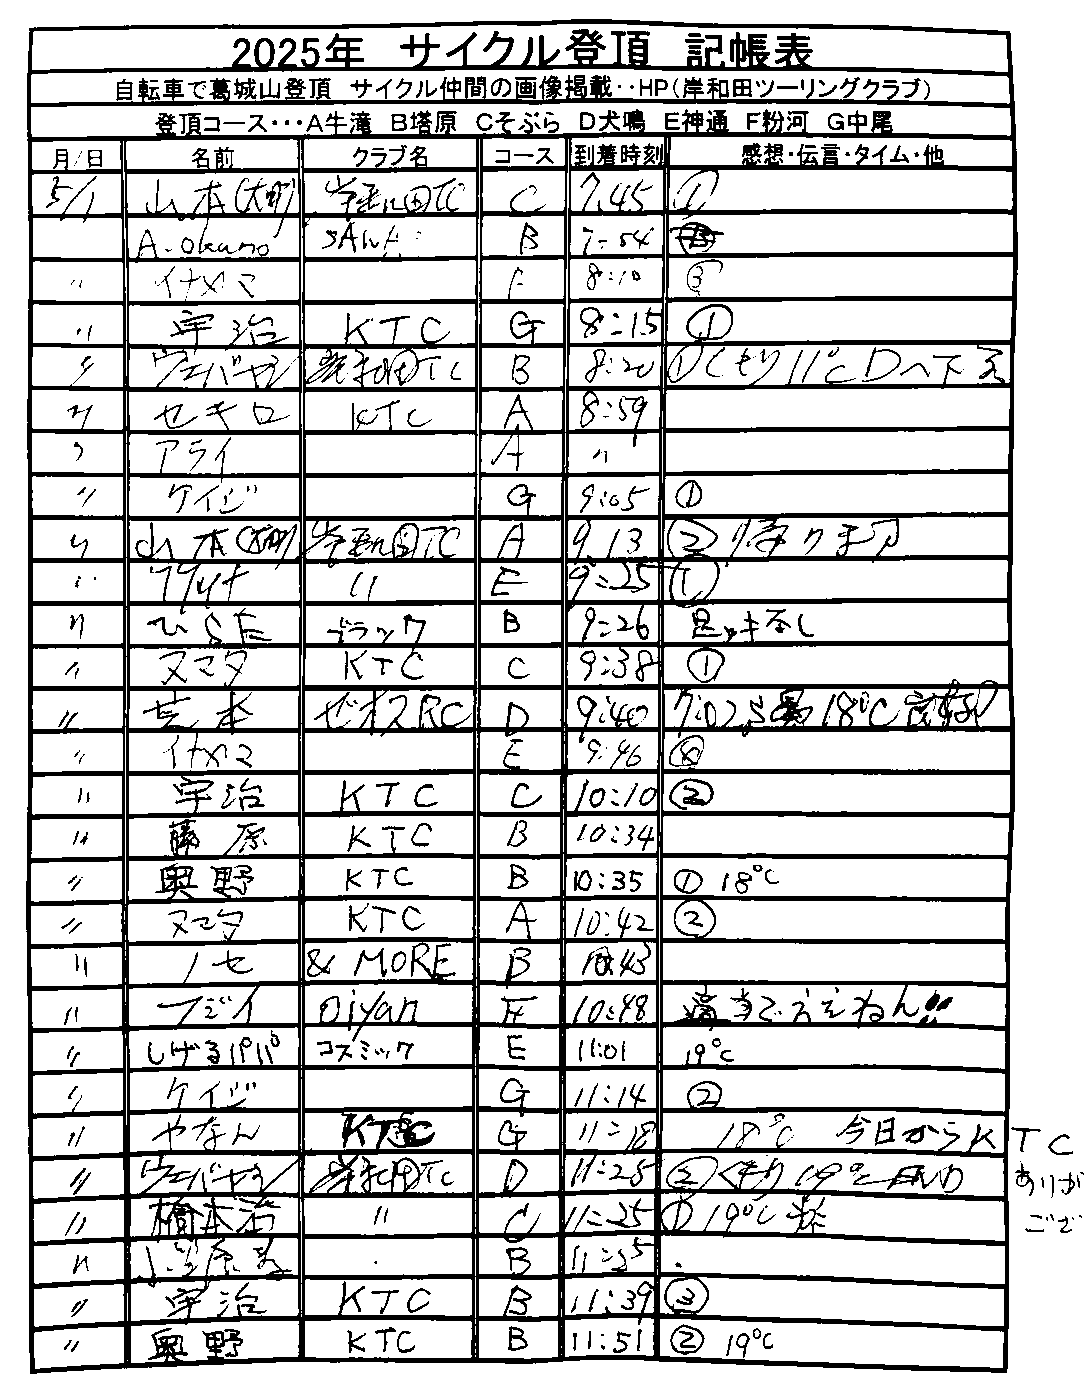 2025年 サイクル登頂 記帳表
自転車で葛城山登頂 サイクル仲間の画像掲載‥HP(岸和田ツーリングクラブ)
登頂コース・・・A牛滝 B塔原 Cそぶら D犬鳴 E神通 F粉河 G中尾
月/日 名前 クラブ名 コース 到着時刻 感想・伝言・タイム・他
5/1 山本 岸和田TC C 7:45 ①
A-okuno B 7:54
〃 イナヤマ F 8:10 ③
〃 宇治 KTC G 8:15 ①
〃 ヴェバヤシ 岸和田TC B 8:20 ①くもり 11℃ Dへ下る
〃 セキロ KTC A 8:59
〃 アライ A 〃
〃 ケイジ G 9:05 ①
〃 山本 岸和田TC A 9:13 ② 帰ります
〃 〃 E 9:25 ①
〃 ひSE ブラック B 9:26 星ッキなし
〃 ヌマタ KTC C 9:38 ①
〃 荒本 ゼオスRC D 9:40 18℃
〃 イナヤマ E 9:46 ④
〃 宇治 KTC C 10:10 ②
〃 藤原 KTC B 10:34
〃 奥野 KTC B 10:35 ① 18℃
〃 ヌマタ KTC A 10:42 ②
〃 ノセ & MORE B 10:43
〃 フジイ Oiyan F 10:48 適当でええねん!!
〃 しげるパパ コスミック E 11:01 19℃
〃 ケイジ G 11:14 ②
〃 やなん KTC G 11:18 18℃ 今日からKTC
〃 ヴェバヤシ 岸和田TC D 11:25 ②くもり 19℃ ありが
〃 橋本治 〃 C 11:25 ① 19℃ ござ
〃 小笠原 B 11:25
〃 宇治 KTC B 11:39 ③
〃 奥野 KTC B 11:51 ② 19℃